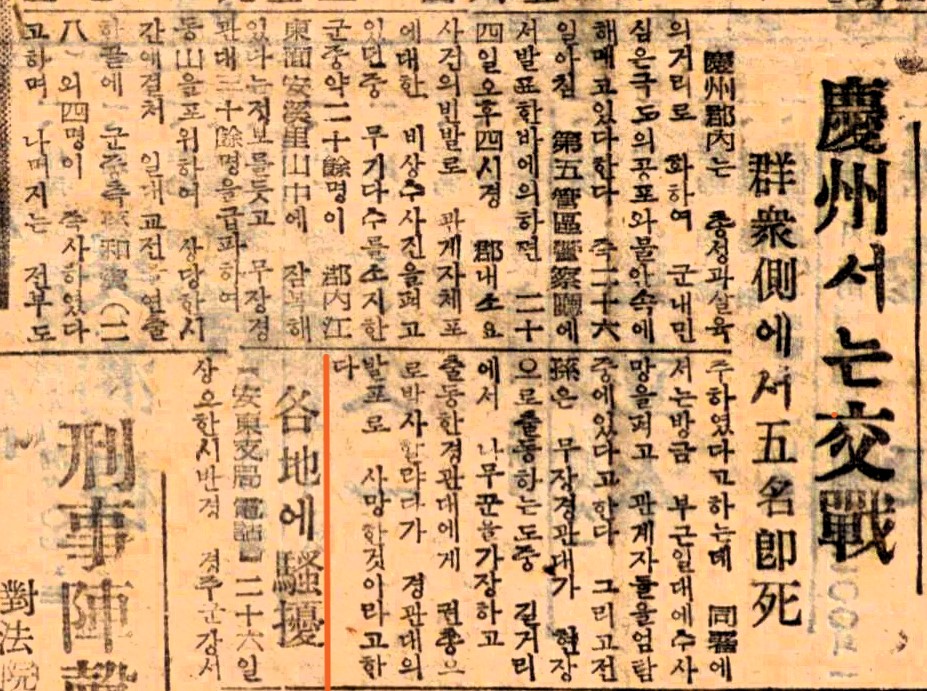 慶州서는交戰
群衆側에서五名卽死
慶州郡內는 총성과살육
의거리로 화하여 군내민
심은극도의공포와불안속에
해매고있다한다 즉二十六
일아침 第五管區警察廳에
서발표한바에의하면 二十
四일오후四시경 郡내소요
사건의빈발로 관계자체포
에대한 비상수사진을펴고
있던중 무기다수를소지한
군중약二十餘명이 郡內江
東面安溪里山中에 잠복해
있다는정보를듯고 무장경
관대三十餘명을급파하여
동山을포위하여 상당한시
간에걸처 일대교전을연출
한끝에 군중측 (二
八 외四명이 즉사하였다
고하며 나머지는 전부도
주하였다고하는데 同署에
서는방금 부근일대에수사
망을펴고 관계자들을엄탐
중에있다고한다 그리고전
孫은 무장경관대가 현장
으로출동하는도중 길거리
에서 나무꾼을가장하고
출동한경관대에게 권총으
로반사할라다가 경관대의
발포로 사망한것이라고한
다
各地에騷擾
【安東支局電話】二十六일
상오한시반경 경주군강서
刑事陣
對法院